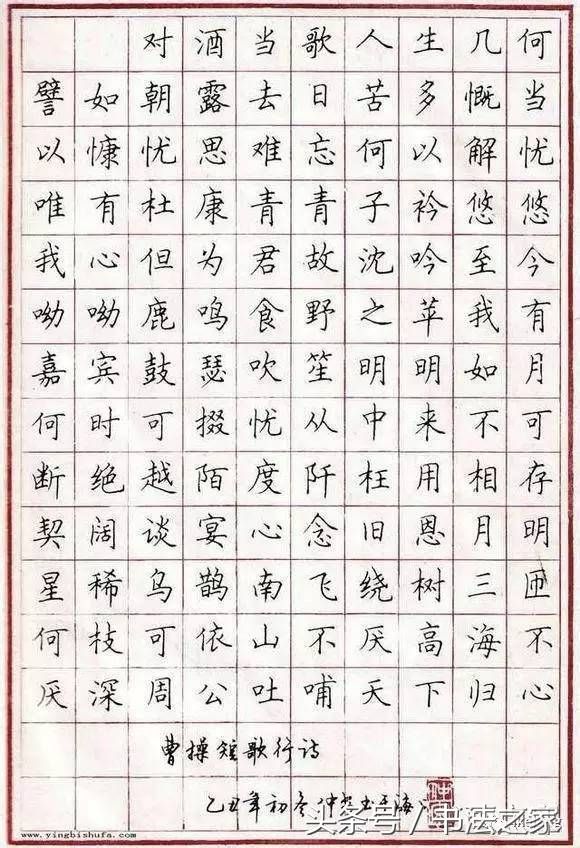 对酒当歌人生几何
譬如朝露去日苦多慨当
以慷忧思难忘何以解忧
唯有杜康青青子衿悠悠
我心但为君故沈吟至今
呦呦鹿鸣食野之苹我有
嘉宾鼓瑟吹笙明明如月
何时可掇忧从中来不可
断绝越陌度阡枉用相存
契阔谈宴心念旧恩月明
星稀乌鹊南飞绕树三匝
何枝可依山不厌高海不
厌深周公吐哺天下归心
曹操短歌行诗
乙丑年初冬仲书于海
头条号/书法之家
www.yingbishufa.com